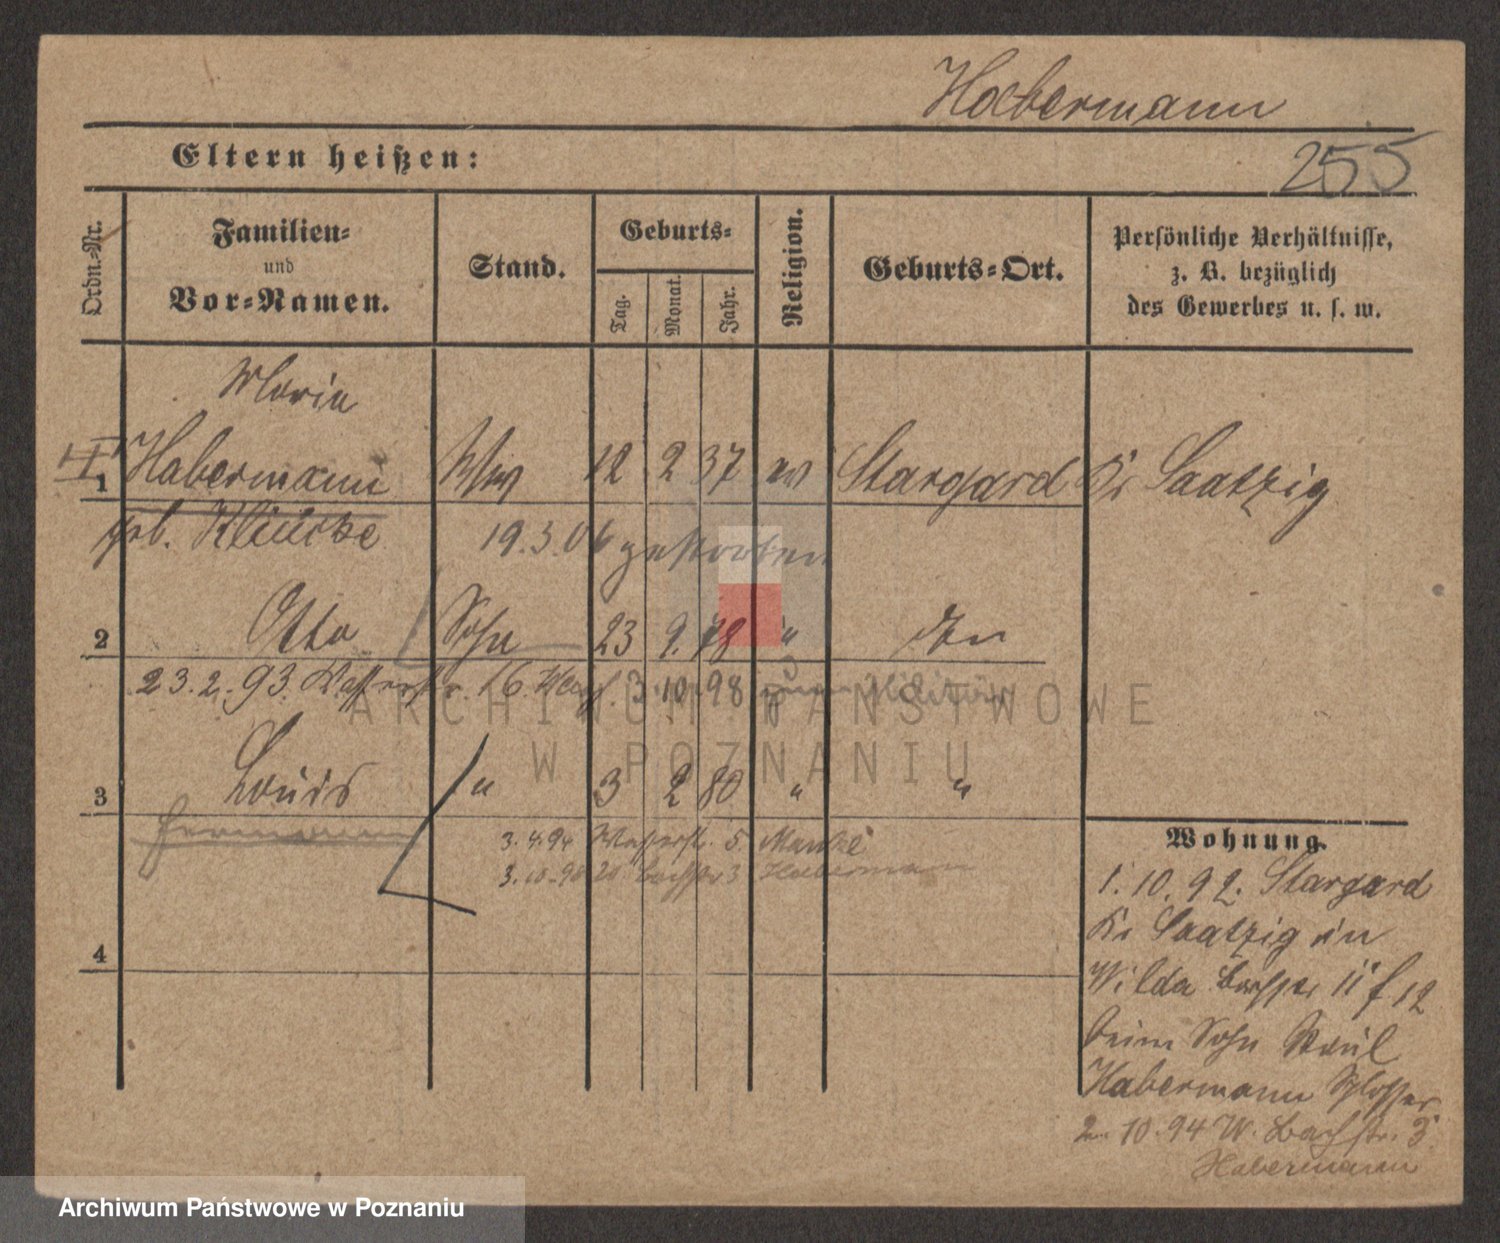 Habermann
255
Eltern heißen:
Ordn.-Nr.
Familien- und Vor-Namen.
Stand.
Geburts-
Tag.
Monat.
Jahr.
Religion.
Geburts-Ort.
Persönliche Verhältnisse, z. B. bezüglich des Gewerbes u. s. w.
Maria
1 Habermann Wwe 12 2 37 ev Stargard Kr Saatzig
geb. 19.3.06 gestorben
2 Otto Sohn 23 9. 78 " den
23.2.93. Wasserstr. 16. 3.10.98 zum Militär
3 Louis " 3 2 80 " "
Hermann
3.4.94 Wasserstr. 5.
3.10.98 Bachstr 3 Habermann
4
Wohnung.
1.10.92. Stargard
Kr Saatzig in
Wilda Bachstr 11 f 12
beim Sohn Paul
Habermann Schlosser
2. 10.94 W. Bachstr. 3.
Habermann
ARCHIWUM PAŃSTWOWE
W POZNANIU
Archiwum Państwowe w Poznaniu